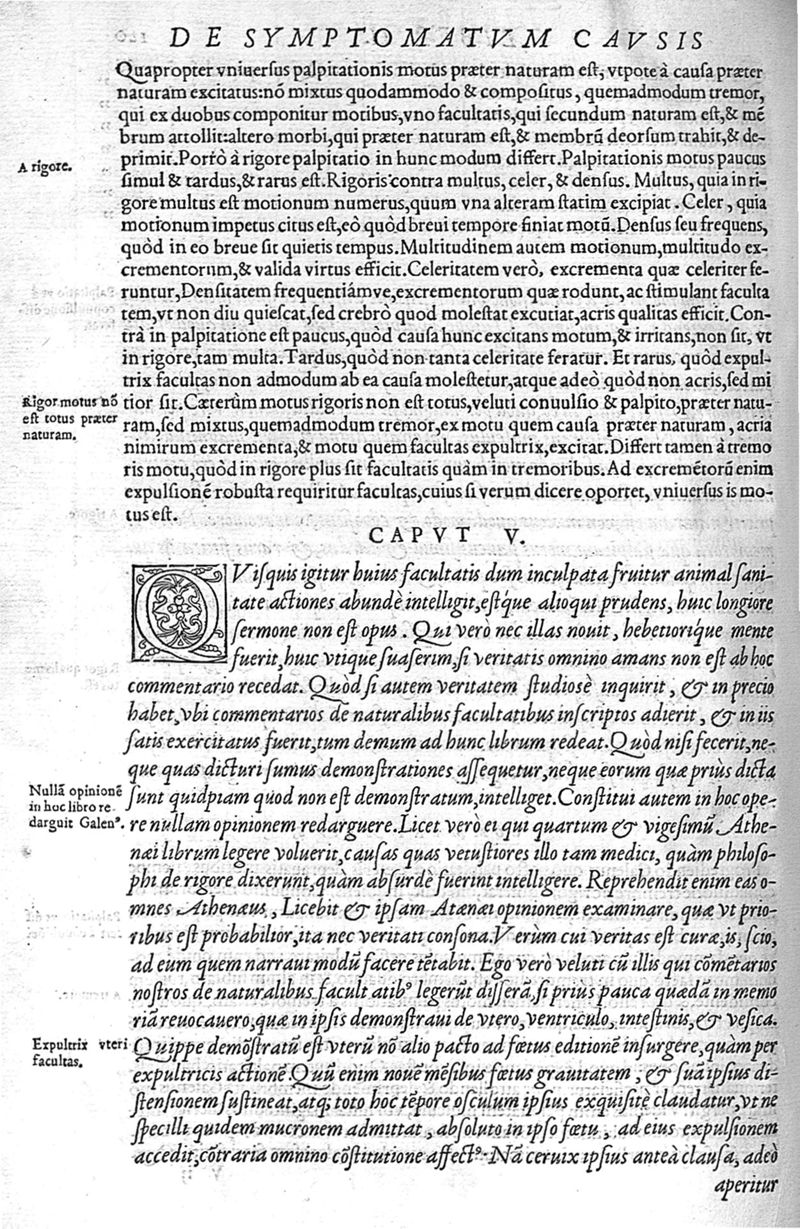 DE SYMPTOMATVM CAVSIS
Quapropter vniuersus palpitationis motus præter naturam est, vtpote à causa præter
naturam excitatus: nō mixtus quodammodo & compositus, quemadmodum tremor,
qui ex duobus componitur motibus, vno facultatis, qui secundum naturam est, & mē
brum attollit: altero morbi, qui præter naturam est, & membrū deorsum trahit, & de-
primit. Porrò à rigore palpitatio in hunc modum differt. Palpitationis motus paucus
A rigore.
simul & tardus, & rarus est. Rigoris contra multus, celer, & densus. Multus, quia in ri-
gore multus est motionum numerus, quum vna alteram statim excipiat. Celer, quia
motionum impetus citus est, eò quòd breui tempore finiat motū. Densus seu frequens,
quòd in eo breue sit quietis tempus. Multitudinem autem motionum, multitudo ex-
crementorum, & valida virtus efficit. Celeritatem verò, excrementa quæ celeriter fe-
runtur, Densitatem frequentiámve, excrementorum quæ rodunt, ac stimulant faculta
tem, vt non diu quiescat, sed crebrò quod molestat excutiat, acris qualitas efficit. Con-
trà in palpitatione est paucus, quòd causa hunc excitans motum, & irritans, non sit, vt
in rigore, tam multa. Tardus, quòd non tanta celeritate feratur. Et rarus, quòd expul-
trix facultas non admodum ab ea causa molestetur, atque adeò quòd non acris, sed mi
Rigor motus nō
est totus præter
naturam.
tior sit. Cæterùm motus rigoris non est totus, veluti conuulsio & palpito, præter natu-
ram, sed mixtus, quemadmodum tremor, ex motu quem causa præter naturam, acria
nimirum excrementa, & motu quem facultas expultrix, excitat. Differt tamen à tremo
ris motu, quòd in rigore plus sit facultatis quàm in tremoribus. Ad excremētorū enim
expulsionē robusta requiritur facultas, cuius si verum dicere oportet, vniuersus is mo-
tus est.
CAPVT V.
QVisquis igitur huius facultatis dum inculpata fruitur animal sani-
tate actiones abundè intelligit, estq́ue alioqui prudens, huic longiore
sermone non est opus. Qui verò nec illas nouit, hebetiorique mente
fuerit, huic vtique suaserim, si veritatis omnino amans non est ab hoc
commentario recedat. Quòd si autem veritatem studiosè inquirit, & in precio
habet, vbi commentarios de naturalibus facultatibus inscriptos adierit, & in iis
satis exercitatus fuerit, tum demum ad hunc librum redeat. Quòd nisi fecerit, ne-
que quas dicturi sumus demonstrationes assequetur, neque eorum quæ priùs dicta
Nullā opinionē
in hoc libro re
darguit Galenꝰ.
sunt quidpiam quod non est demonstratum, intelliget. Constitui autem in hoc ope-
re nullam opinionem redarguere. Licet verò ei qui quartum & vigesimū Athe-
næi librum legere voluerit, causas quas vetustiores illo tam medici, quàm philoso-
phi de rigore dixerunt, quàm absurdè fuerint intelligere. Reprehendit enim eas o-
mnes Athenæus, Licebit & ipsam Atænæi opinionem examinare, quæ vt prio-
ribus est probabilior, ita nec veritati consona. Verùm cui veritas est curæ, is, scio,
ad eum quem narraui modū facere tētabit. Ego verò veluti cū illis qui cōmētarios
nostros de naturalibus facultatibꝰ legerūt disserā, si priùs pauca quædā in memo
riā reuocauero, quæ in ipsis demonstraui de vtero, ventriculo, intestinis, & vesica.
Expultrix vteri
facultas.
Quippe demōstratū est vterū nō alio pacto ad fœtus editionē insurgere, quàm per
expultricis actionē. Quū enim nouē mēsibus fœtus grauitatem, & suā ipsius di-
stensionem sustineat, atq; toto hoc tēpore osculum ipsius exquisitè claudatur, vt ne
specilli quidem mucronem admittat, absoluto in ipso fœtu, ad eius expulsionem
accedit, cōtraria omnino cōstitutione affectꝰ. Nā ceruix ipsius anteà clausa, adeò
aperitur